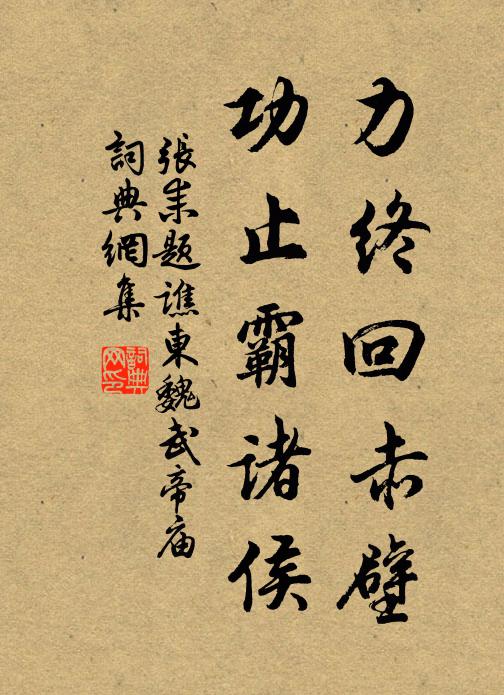 力终回赤壁
功止霸诸侯
張耒题譙東魏武帝庙
詞典網集
詞典网印